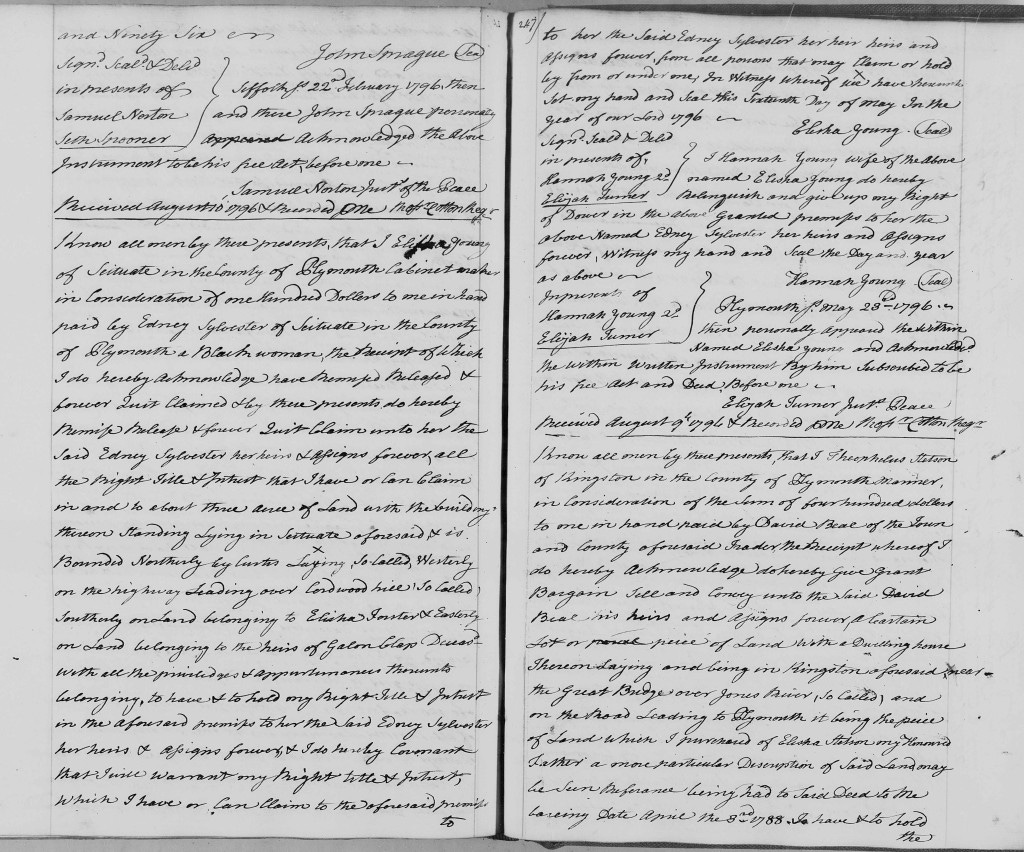 and Ninety Six
John Sprague Seal
Signd. Seald. & Deld
in presents of
Samuel Norton
Seth Spooner
Suffolk Ss 22d February 1796, then
and there John Sprague personally
appeared Acknowledged the Above
Instrument to be his free Act, before me
Samuel Norton Just. of the Peace
Received August 10 1796 & Recorded Me Rossr. Cotton Regr
Know all men by these presents, that I Elisha Young
of Scituate in the County of Plymouth Cabinet maker
in Consideration of one Hundred Dollars to me in hand
paid by Edney Sylvester of Scituate in the County
of Plymouth a Black woman, the Receipt of Which
I do hereby Acknowledge have Remised Released &
forever Quit Claimed & by these presents, do hereby
Remise Release & forever Quit Claim unto her the
Said Edney Sylvester her heirs & Assigns forever, all
the Right Title & Intrust that I have or Can Claim
in and to about three acre of Land with the buildings
thereon Standing Lying in Scituate aforesaid, & is
Bounded Northerly by Curtis So Called, Westerly
on the highway Leading over Cordwood hill So Called,
Southerly on Land belonging to Elisha Foster & Easterly
on Land belonging to the heirs of Galon Clap Deceasd
With all the priviledges & appurtenances thereunto
belonging, to have & to hold my Right Title & Intrust
in the aforesaid premiss to her the Said Edney Sylvester
her heirs & Assigns forever, & I do hereby Covenant
that I will warrant my Right title & Intrust,
Which I have or Can Claim to the aforesaid premiss
to
247
to her the Said Edney Sylvester her heir heirs and
Assigns forever, from all persons that may Claim or hold
by from or under me, In Witness whereof we have hereunto
Set my hand and Seal this Sixteenth Day of may In the
year of our Lord 1796
Elisha Young Seal
Signd. Seald & Deld
in presents of,
Hannah Young 2d
Elijah Turner
I Hannah Young wife of the Above
named Elisha Young do hereby
Relenquish and give up my Right
of Dower in the above Granted premiss to her the
above Named Edney Sylvester her heirs and Assigns
forever, Witness my hand and Seal the Day and year
as above
Hannah Young Seal
In presents of
Hannah Young 2d
Elijah Turner
Plymouth Ss. May 23rd 1796
then personally appeared the Within
Named Elisha young and Acknowledd.
the within Written Instrument By him Subscribed to be
his free Act and Deed, Before me
Elijah Turner Just. Peace
Received August 9th 1796 & Recorded Me Rossr. Cotton Regr
Know all men by these presents, that I Theophelus Stetson
of Kingston in the County of Plymouth Mariner,
in Consideration of the Sum of four hundred dollars
to me in hand paid by David Beal of the Town
and County aforesaid Trader, the Receipt whereof I
do hereby Acknowledge do hereby Give Grant
Bargain Sell and Convey unto the Said David
Beal his heirs and Assigns forever, a Certain
Lot or peice of Land with a Dwelling house
Thereon Laying and being in Kingston aforesaid, near
the Great Bridge over Jones River, So Called, and
on the Road Leading to Plymouth it being the peice
of Land which I purchased of Elisha Stetson my Honoured
Father a more particular Description of Said Land may
be Seen Referance being had to Said Deed to Me
bareing Date April the 3rd 1788. To have & to hold
the